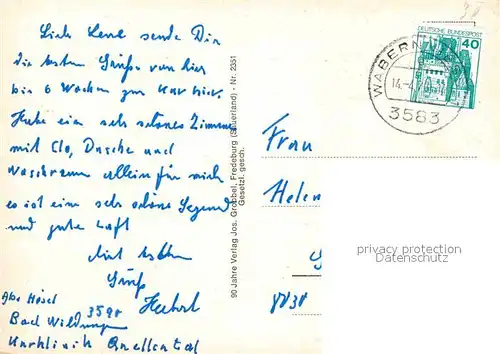 Liebe Lene sende Dir
die besten Grüße von hier
bis 6 Wochen zur Kur hier.
Habe ein sehr schönes Zimmer
mit Clo, Dusche und
Waschraum allein für mich
es ist eine sehr schöne Gegend
und gute Luft
Mit
Gruß
Hubert
3590
Bad Wildungen
Kurklinik Quellental
90 Jahre Verlag Jos. Grobbel, Fredeburg (Sauerland) - Nr. 2351
Gesetzl. gesch.
DEUTSCHE BUNDESPOST
40
WABERN
14.-4.
3583
Frau
Helen
privacy protection
Datenschutz